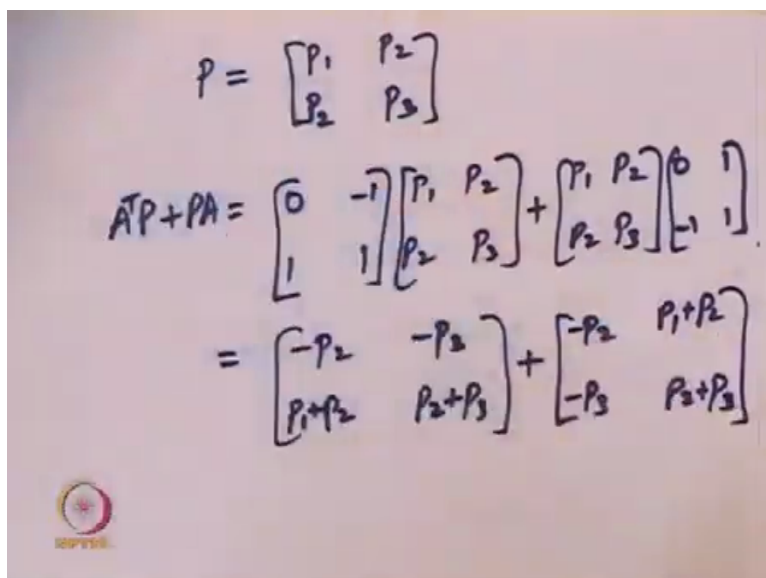 P = [P₁ P₂
P₂ P₃]
AᵀP + PA = [0 -1
1 1] [P₁ P₂
P₂ P₃] + [P₁ P₂
P₂ P₃] [0 1
-1 1]
= [-P₂ -P₃
P₁+P₂ P₂+P₃] + [-P₂ P₁+P₂
-P₃ P₂+P₃]
NPTEL